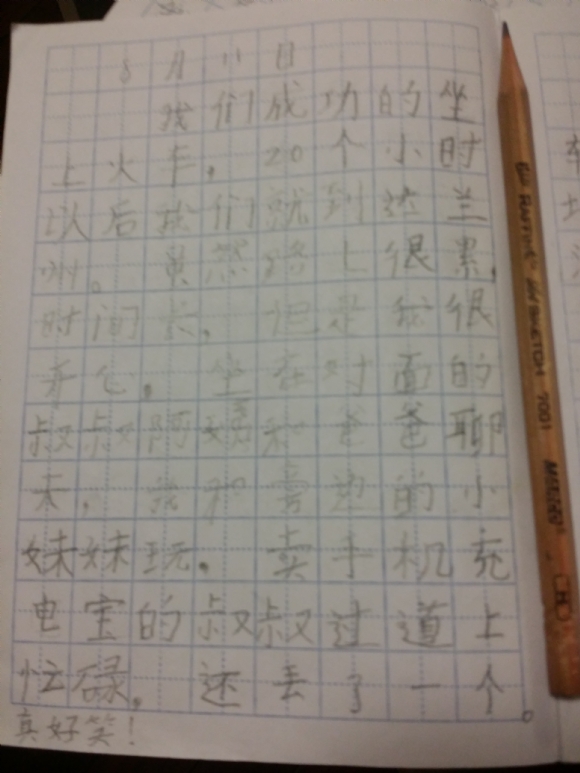 8月11日
我们成功的坐
上火车。20个小时
以后我们就到达兰
州。虽然路上很累,
时间长,但是我很
开心。坐在对面的
叔叔阿姨和爸爸聊
天,我和旁边的小
妹妹玩。卖手机充
电宝的叔叔过道上
忙碌,还丢了一个。
真好笑!
7001